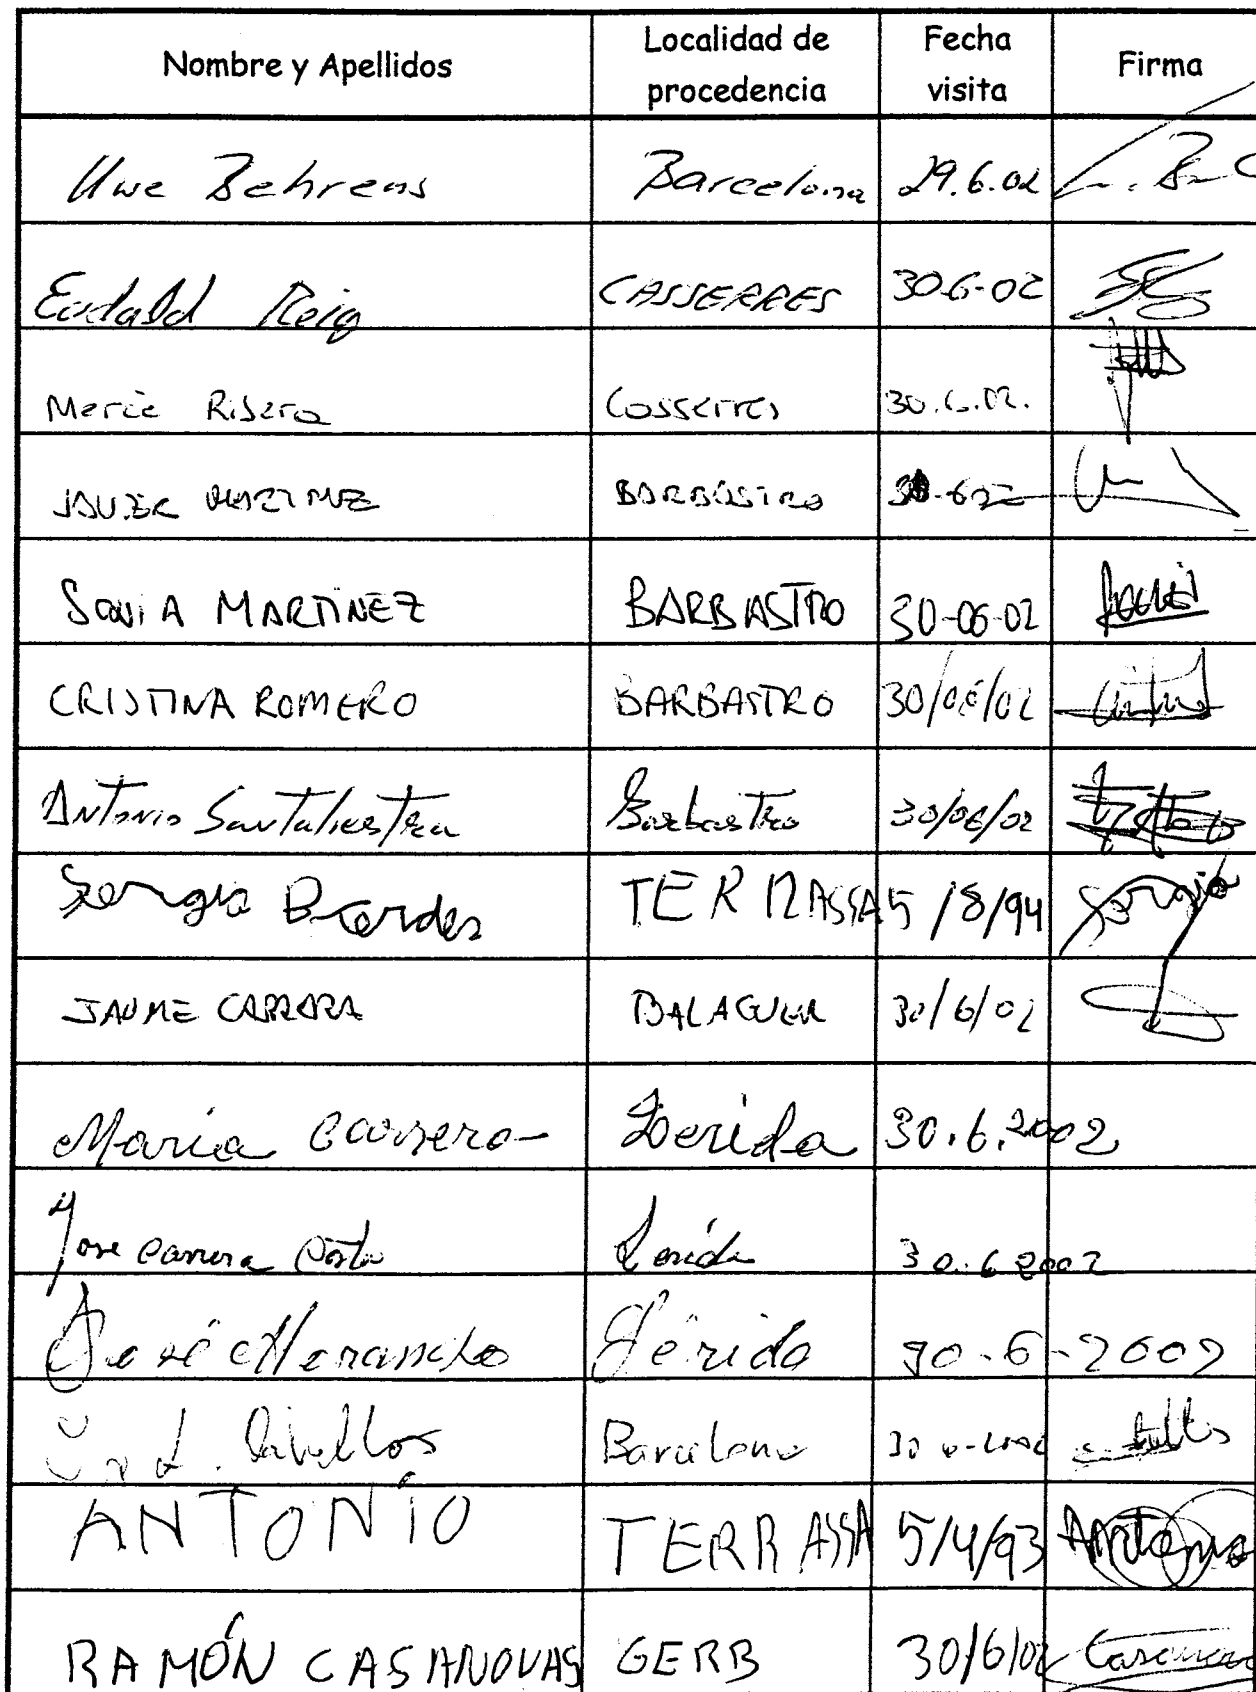 Nombre y Apellidos Localidad de procedencia Fecha visita Firma
Uwe Behrens Barcelona 29.6.02
Eudald Reig CASSERRES 30-6-02
Mercè Ribera Casserres 30.6.02.
JAVIER MARTINEZ BARBASTRO 30-6-02
SONIA MARTINEZ BARBASTRO 30-06-02
CRISTINA ROMERO BARBASTRO 30/06/02
Antonio Santaliestra Barbastro 30/06/02
Sergio TERRASSA 5/8/94 Sergio
JAUME CARRARA BALAGUER 30/6/02
Maria Lerida 30.6.2002
Jose Lerida 30.6 2002
José Lérida 30-6-2002
Barcelona
ANTONIO TERRASSA 5/4/93 Antonio
RAMÓN CASANOVAS GERB 30/6/02